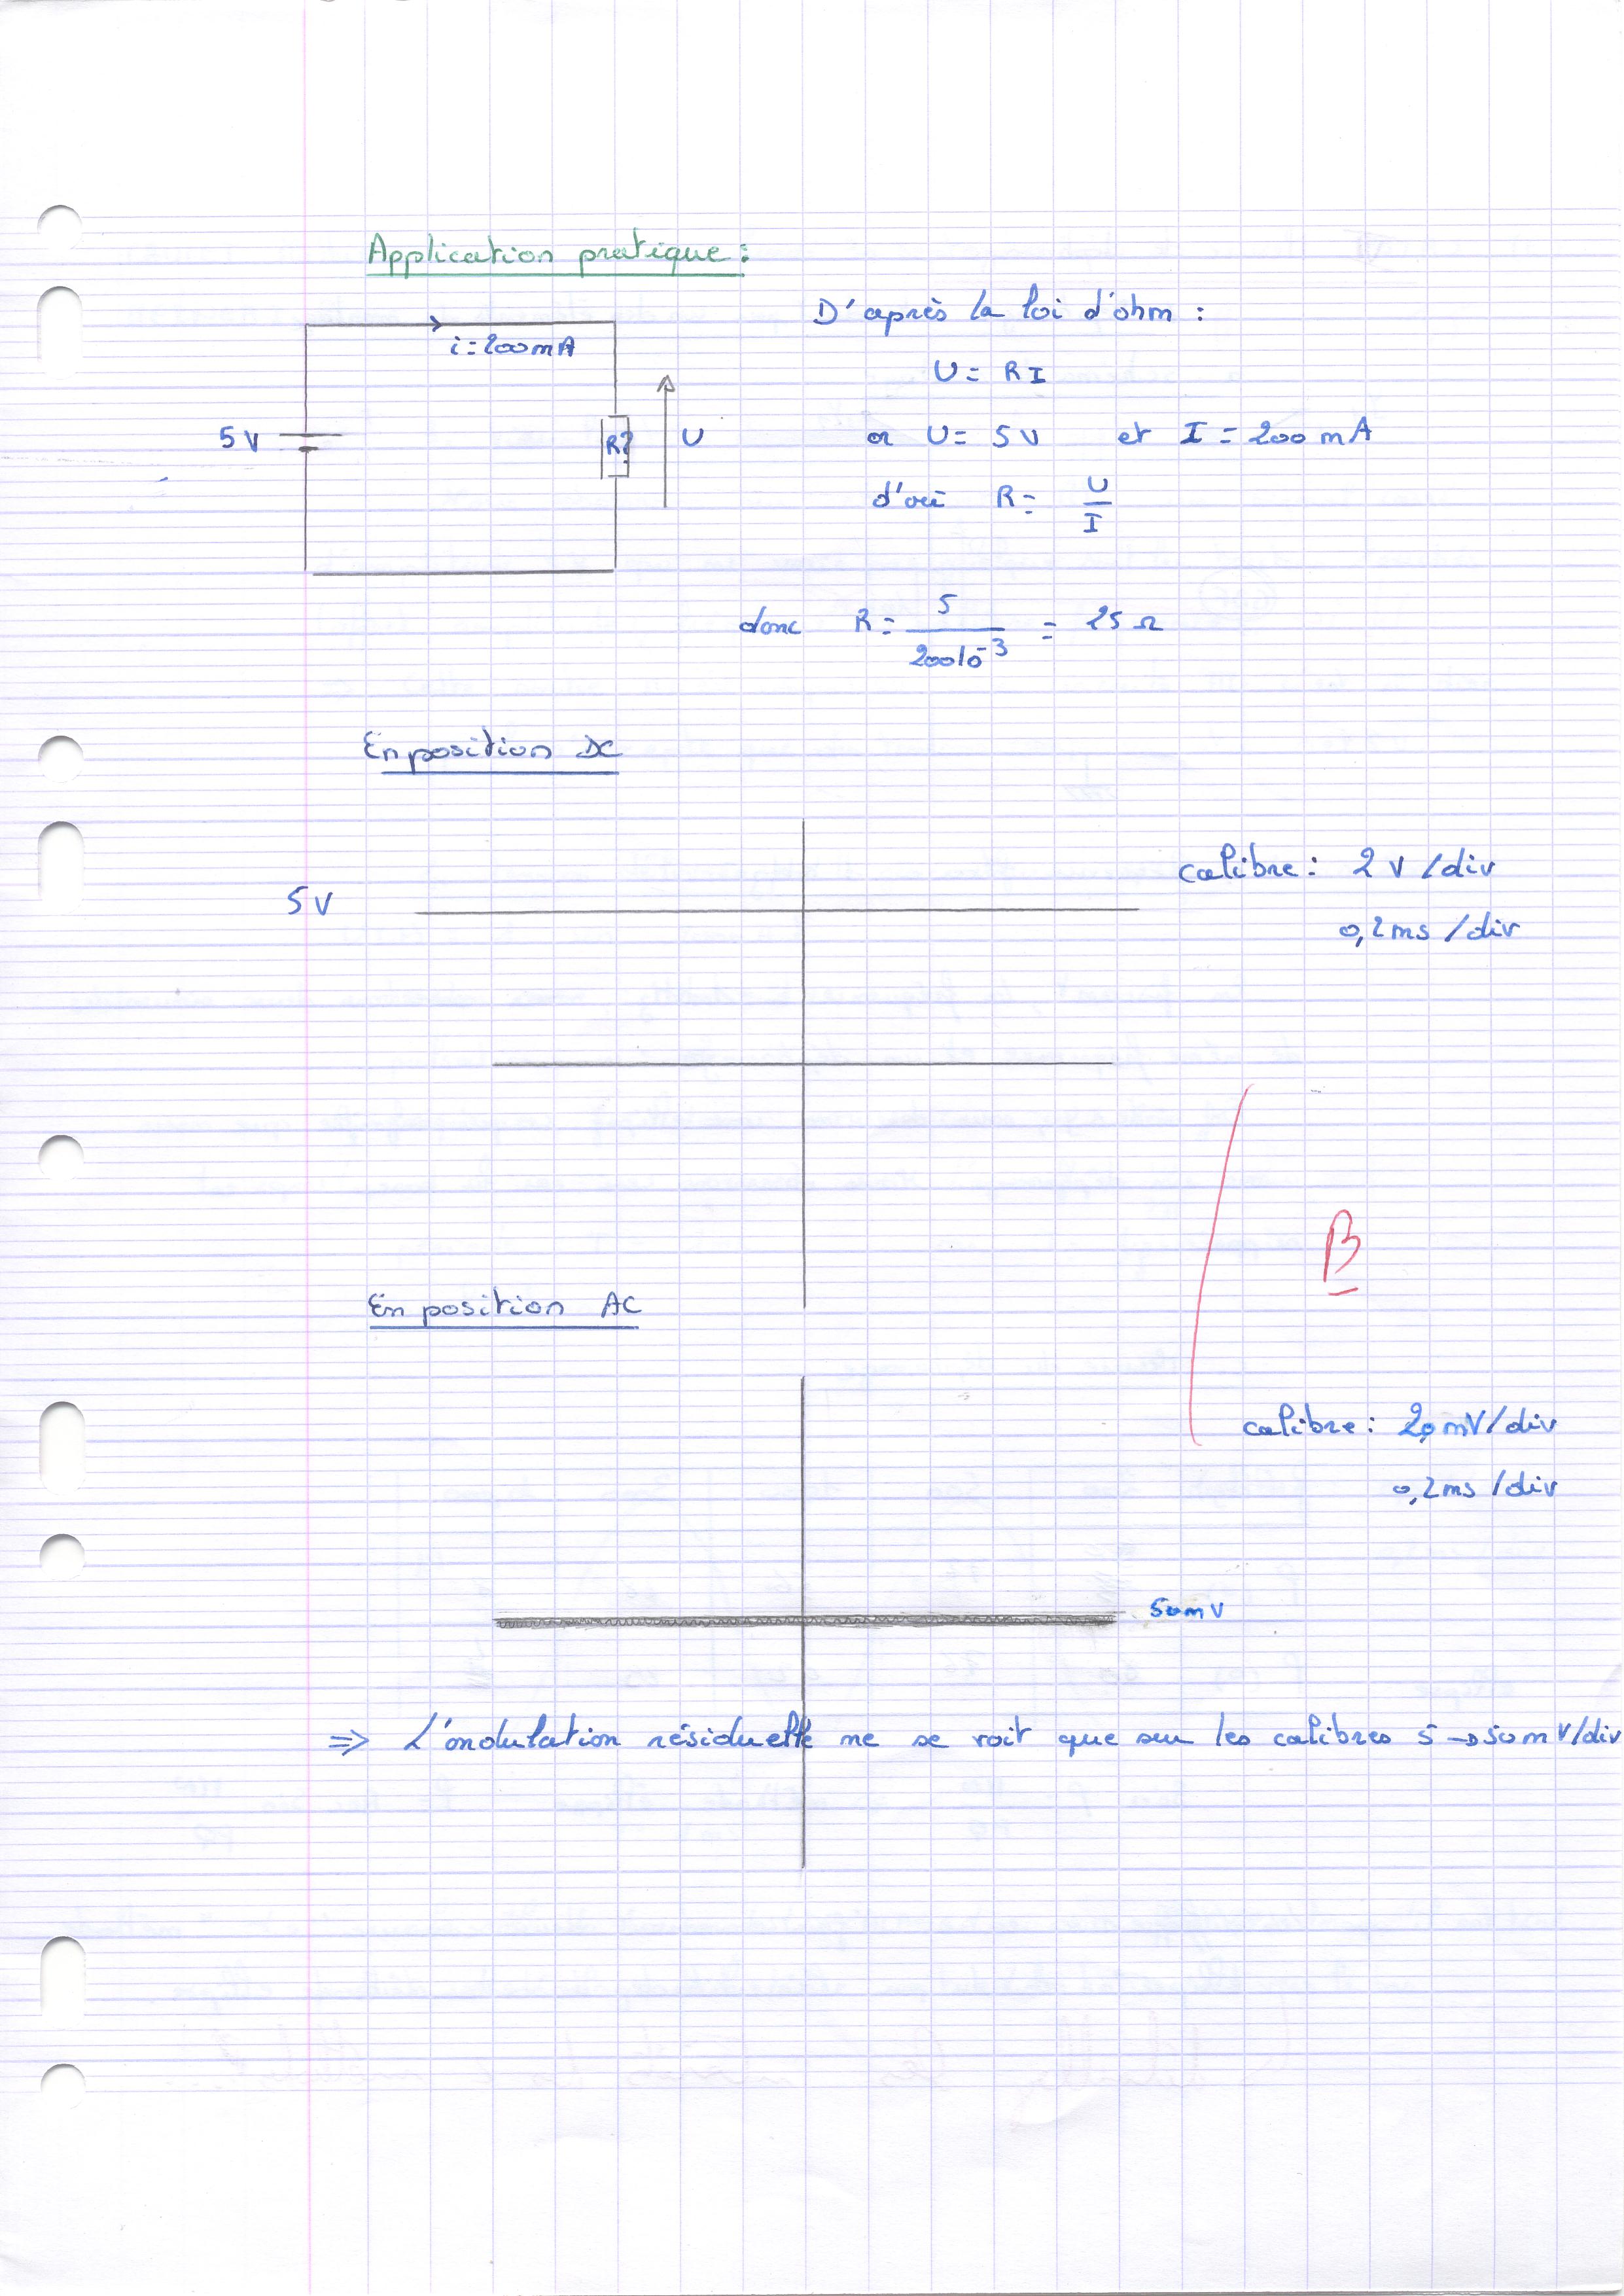 Application pratique :
i = 200 mA
5 V
R?
U
D'après la loi d'ohm :
U = RI
or U = 5 V et I = 200 mA
d'où R = U / I
donc R = 5 / 200 10^-3 = 25 Ω
En position DC
calibre : 2 V /div
0,2 ms /div
5 V
B
En position AC
calibre : 20 mV/div
0,2 ms /div
50 mV
=> L'ondulation résiduelle ne se voit que sur les calibres 5 → 50 mV/div